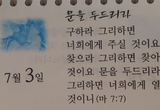 문을 두드리라
구하라 그리하면
너희에게 주실 것이요
찾으라 그리하면 찾아낼
것이요 문을 두드리라
그리하면 너희에게 열릴
것이니 (마 7:7)
7월 3일